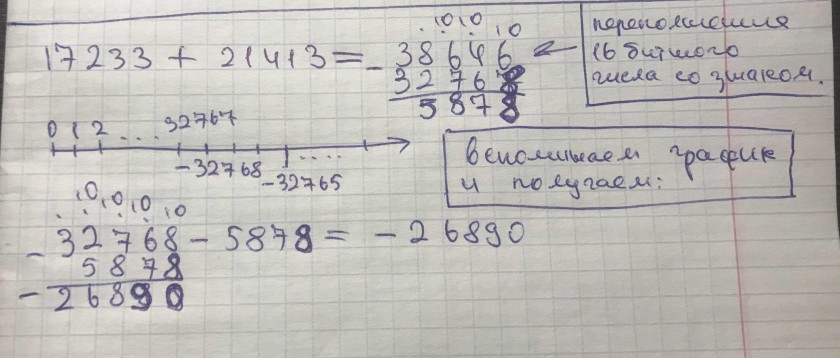 17233 + 21413 = 38646
- 32768
5878
переполнения
16 битного
числа со знаком.
0 1 2 ... 32767
-32768
-32765
....
вспоминаем график
и получаем:
10 10 10 10
- 32768 - 5878 = - 26890
5878
- 26890